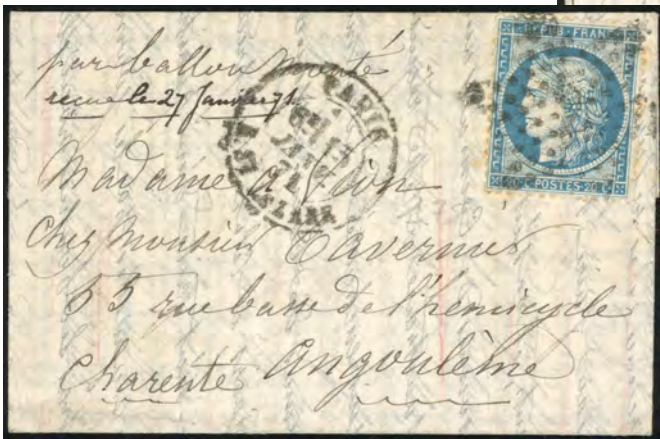 par ballon monté
reçue le 27 Janvier 71
PARIS
JANV
71
R. ST LAZARE
REPUB FRANC
20 C POSTES 20 C
Madame
chez Monsieur Tavernier
55 rue basse de l'hémicycle
Charente Angoulême